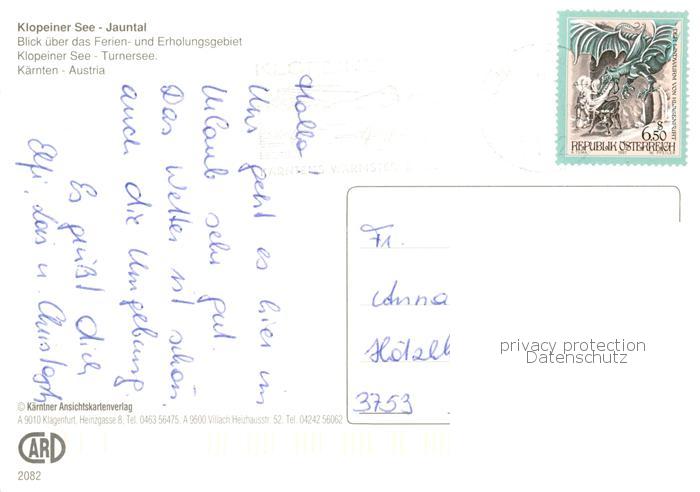 Klopeiner See - Jauntal
Blick über das Ferien- und Erholungsgebiet
Klopeiner See - Turnersee.
Kärnten - Austria
KLOPEINER
KÄRNTENS WÄRMSTER
DER LINDWURM VON KLAGENFURT
S
6.50
REPUBLIK ÖSTERREICH
1997
Hallo
Uns geht es hier im
Urlaub sehr gut.
Das Wetter ist schön
auch die Umgebung.
Es grüßt dich
Elfi, u. Christoph
Fr.
Anna
Hötzel
3753
privacy protection
Datenschutz
© Kärntner Ansichtskartenverlag
A 9010 Klagenfurt, Heinzgasse 8, Tel. 0463 56475, A 9500 Villach Heizhausstr. 52, Tel. 04242 56062
CARD
2082